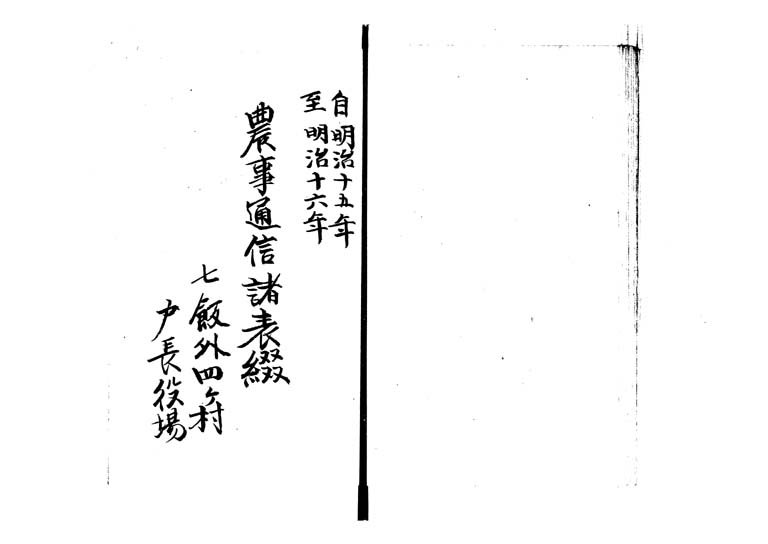 自明治十五年
至明治十六年
農事通信諸表綴
七飯外四ヶ村
戸長役場